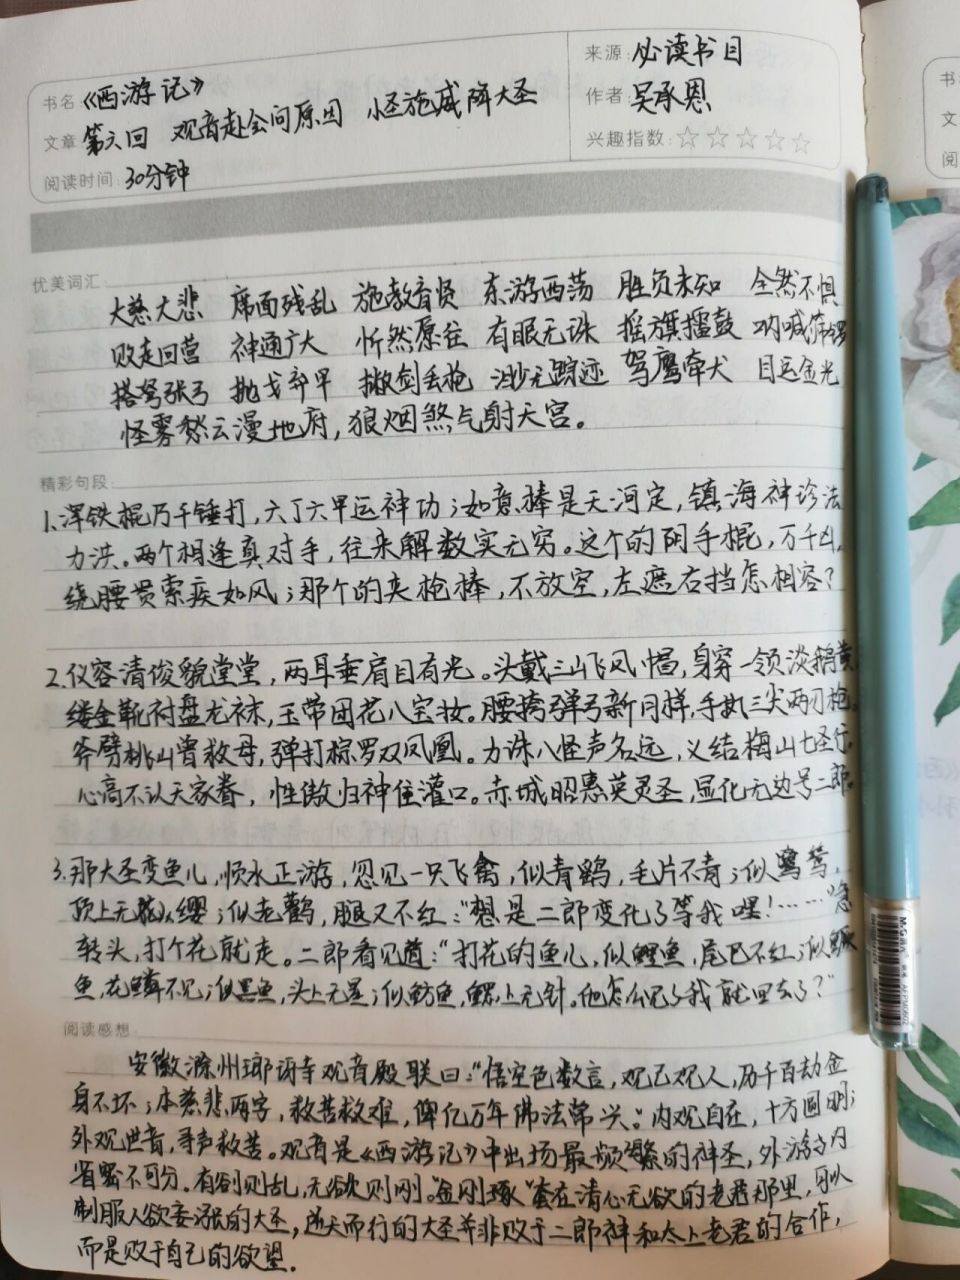 书名:《西游记》
文章:第六回 观音赴会问原因 小圣施威降大圣
阅读时间:30分钟
来源:必读书目
作者:吴承恩
兴趣指数:☆☆☆☆☆
优美词汇:
大慈大悲 席面残乱 施教育贤 东游西荡 胜负未知 全然不惧
败走回营 神通广大 忻然愿往 有眼无珠 摇旗擂鼓 呐喊筛锣
搭弩张弓 抛戈弃甲 撇剑丢枪 渺无踪迹 驾鹰牵犬 目运金光
怪雾愁云漫地府,狼烟煞气射天宫。
精彩句段:
1.浑铁棍乃千锤打,六丁六甲运神功;如意棒是天河定,镇海神珍法
力洪。两个相逢真对手,往来解数实无穷。这个的阴手棍,万千凶,
绕腰贯索疾如风;那个的夹枪棒,不放空,左遮右挡怎相容?
2.仪容清俊貌堂堂,两耳垂肩目有光。头戴三山飞凤帽,身穿一领淡鹅黄
缕金靴衬盘龙袜,玉带团花八宝妆。腰挎弹弓新月样,手执三尖两刃枪。
斧劈桃山曾救母,弹打棕罗双凤凰。力诛八怪声名远,义结梅山七圣行
心高不认天家眷,性傲归神住灌口。赤城昭惠英灵圣,显化无边号二郎。
3.那大圣变鱼儿,顺水正游,忽见一只飞禽,似青鹞,毛片不青;似鹭鸶,
顶上无缨;似老鹳,腿又不红:"想是二郎变化了等我哩!……"急
转头,打个花就走。二郎看见道:"打花的鱼儿,似鲤鱼,尾巴不红;似鳜
鱼,花鳞不见;似黑鱼,头上无星;似鲂鱼,鳃上无针。他怎么见了我就回去了?"
阅读感想:
安徽滁州琅琊寺观音殿联曰:"悟空色数言,观己观人,历千百劫金
身不坏;本慈悲两字,救苦救难,俾亿万年佛法常兴。"内观自在,十方圆明;
外观世音,寻声救苦。观音是《西游记》中出场最频繁的神圣,外游与内
省密不可分。有欲则乱,无欲则刚。"金刚琢"套在清心无欲的老君那里,可以
制服人欲妄涨的大圣,逆天而行的大圣并非败于二郎神和太上老君的合作,
而是败于自己的欲望.
M&G